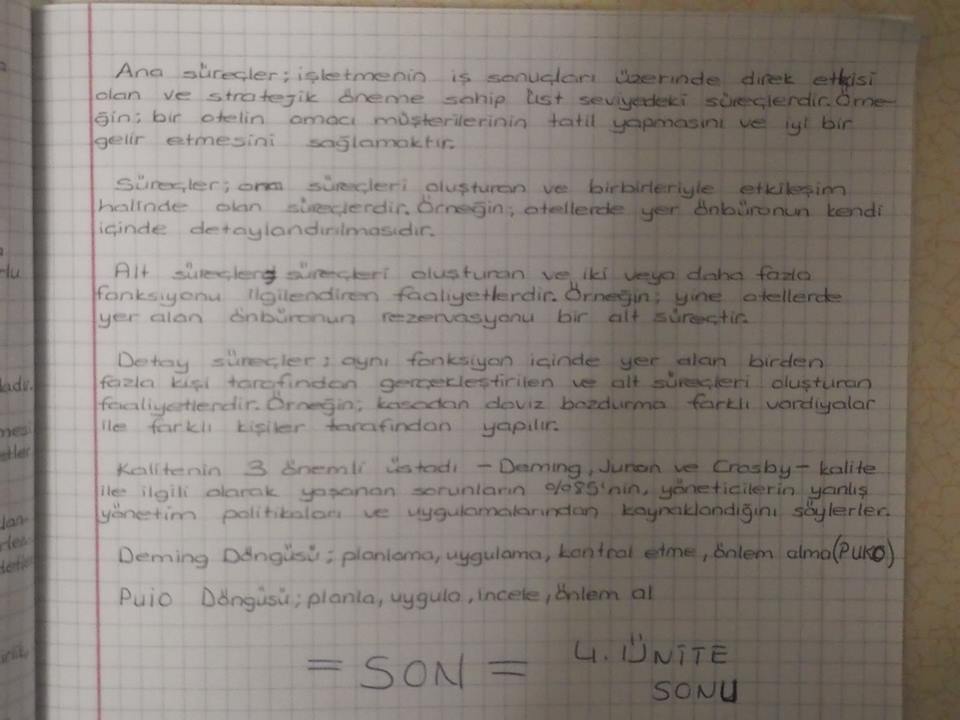 Ana süreçler; işletmenin iş sonuçları üzerinde direk etkisi
olan ve stratejik öneme sahip üst seviyedeki süreçlerdir. Örne-
ğin; bir otelin amacı müşterilerinin tatil yapmasını ve iyi bir
gelir etmesini sağlamaktır.
Süreçler; ana süreçleri oluşturan ve birbirleriyle etkileşim
halinde olan süreçlerdir. Örneğin; otellerde yer önbüronun kendi
içinde detaylandırılmasıdır.
Alt süreçler; süreçleri oluşturan ve iki veya daha fazla
fonksiyonu ilgilendiren faaliyetlerdir. Örneğin; yine otellerde
yer alan önbüronun rezervasyonu bir alt süreçtir.
Detay süreçler; aynı fonksiyon içinde yer alan birden
fazla kişi tarafından gerçekleştirilen ve alt süreçleri oluşturan
faaliyetlerdir. Örneğin; kasadan döviz bozdurma farklı vardiyalar
ile farklı kişiler tarafından yapılır.
Kalitenin 3 önemli üstadı - Deming, Juran ve Crosby - kalite
ile ilgili olarak yaşanan sorunların %85'nin, yöneticilerin yanlış
yönetim politikaları ve uygulamalarından kaynaklandığını söylerler.
Deming Döngüsü; planlama, uygulama, kontrol etme, önlem alma (PUKÖ)
Puiö Döngüsü; planla, uygula, incele, önlem al
= SON = 4. ÜNİTE
SONU